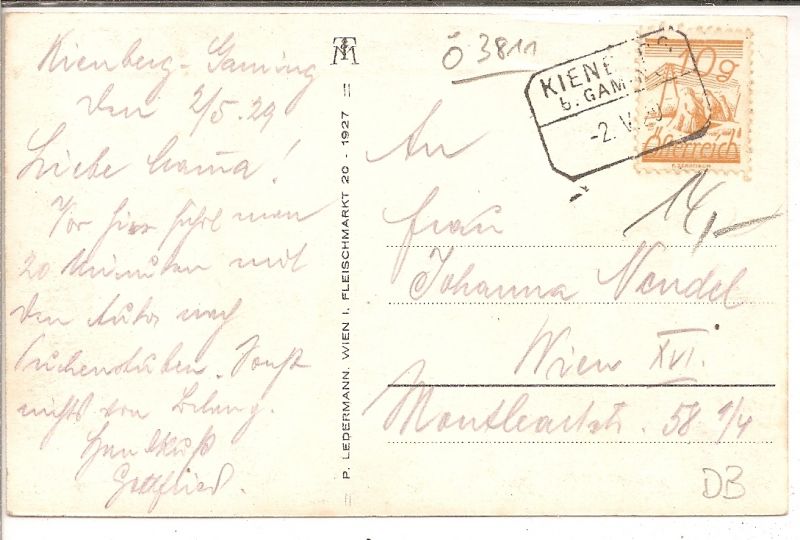 Kienberg-Gaming
den 2/5.29
Liebe Mama!
Von hier fährt man
20 Minuten mit
den Auto nach
Puchenstuben. Sonst
nichts von Belang.
Handkuß
Gottfried.
P. LEDERMANN, WIEN I. FLEISCHMARKT 20 - 1927
Ö 3811
KIENB
b. GAM
-2. V. 29
10g
Österreich
14,-
An
Frau
Johanna Nendel
Wien XVI.
Montleartstr. 58 9/4
DB